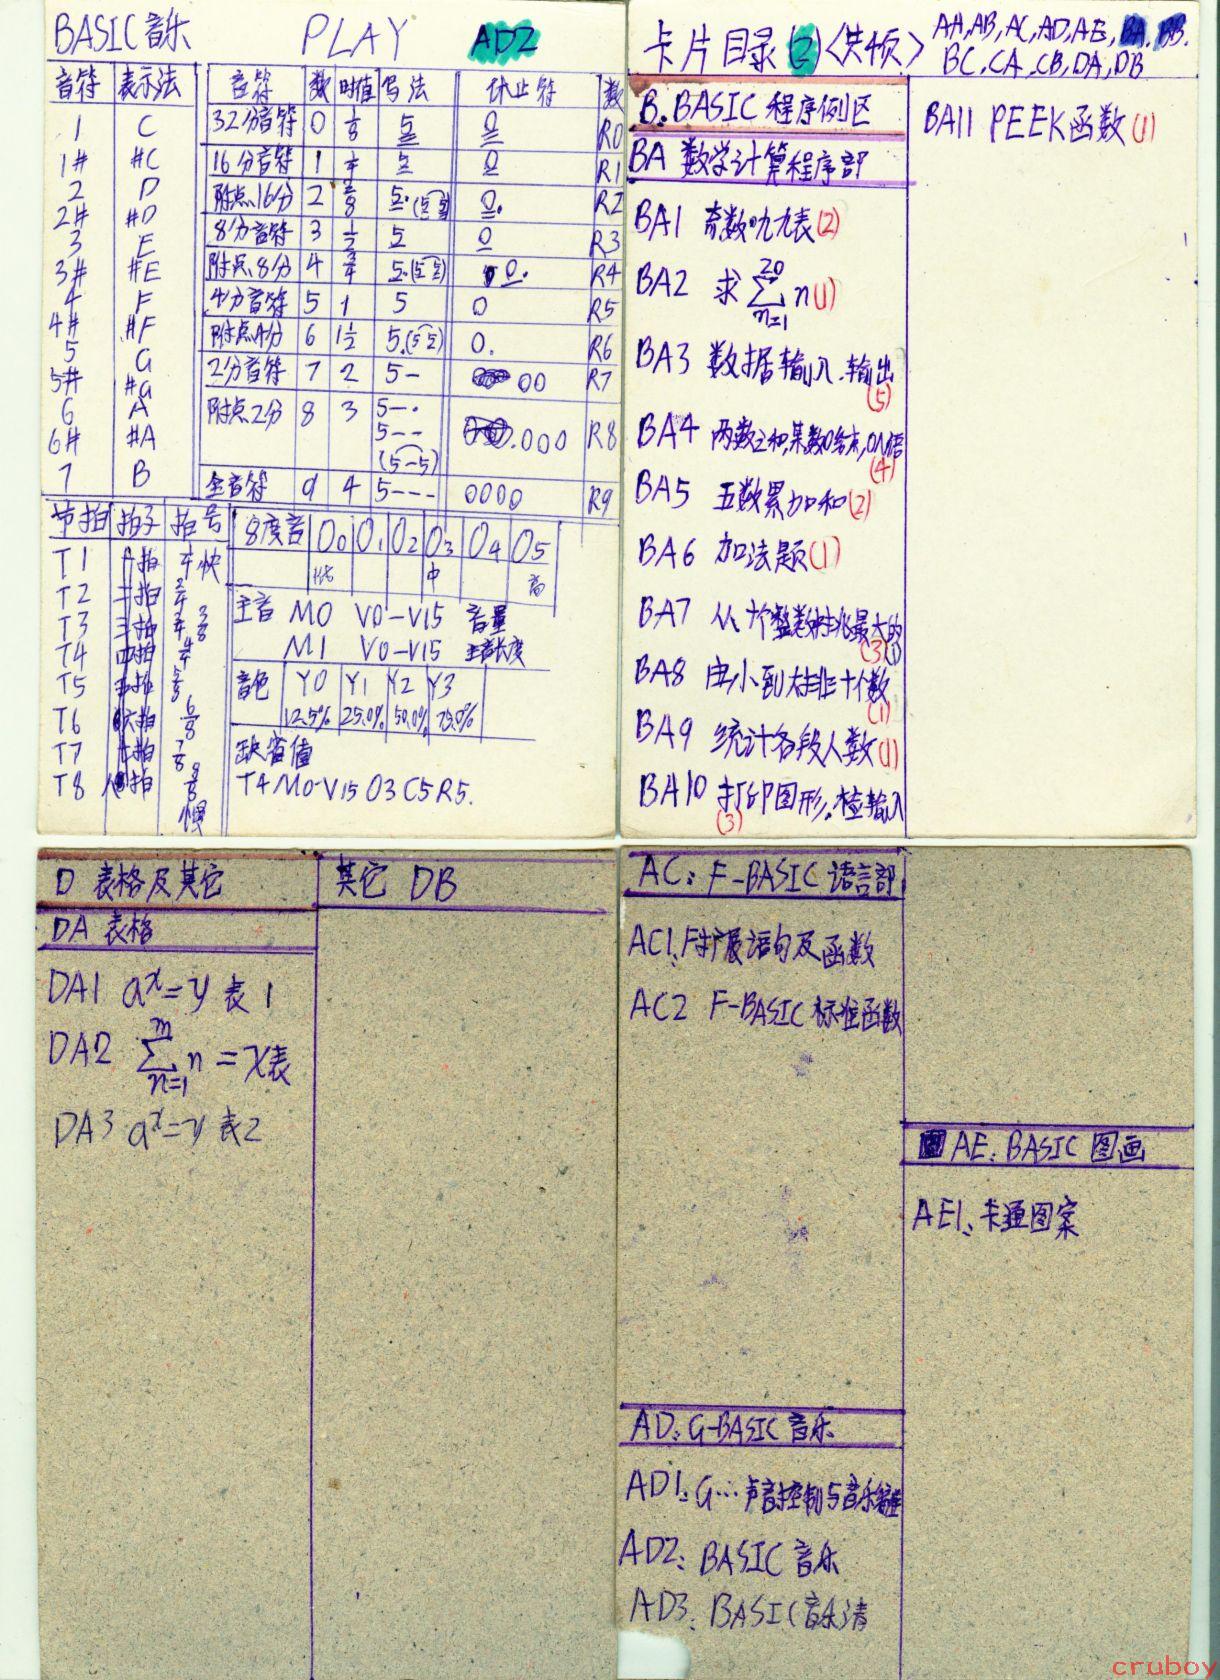 BASIC音乐 PLAY AD2
音符 表示法
1 C
1# #C
2 D
2# #D
3 E
3# #E
4 F
4# #F
5 G
5# #G
6 A
6# #A
7 B
音符 数 时值 写法 休止符 数
32分音符 0 1/8 5 0 R0
16分音符 1 1/4 5 0 R1
附点16分 2 3/8 5.(5 5) 0. R2
8分音符 3 1/2 5 0 R3
附点8分 4 3/4 5.(5 5) 0. R4
4分音符 5 1 5 0 R5
附点4分 6 1 1/2 5.(5 5) 0. R6
2分音符 7 2 5– 00 R7
附点2分 8 3 5–. 000 R8
5--
(5–5)
全音符 9 4 5--- 0000 R9
节拍 拍子 拍号
T1 一拍 1/4 快
T2 二拍 2/4
T3 三拍 3/4 3/8
T4 四拍 4/4
T5 五拍 5/8
T6 六拍 6/8
T7 七拍 7/8
T8 八拍 8/8
慢
8度音 O0 O1 O2 O3 O4 O5
低 中 高
主音 M0 V0-V15 音量
M1 V0-V15 主音长度
音色 Y0 Y1 Y2 Y3
12.5% 25.0% 50.0% 75.0%
缺省值
T4 M0-V15 O3 C5 R5.
卡片目录(2)<共4页> AA,AB,AC,AD,AE,BA,BB.
BC,CA,CB,DA,DB
B.BASIC程序例区
BA 数学计算程序部
BA1 奇数九九表(2)
BA2 求∑n(1)
20
n=1
BA3 数据输入.输出
(5)
BA4 两数之和,某数0结束,
(4)
BA5 五数累加和(2)
BA6 加法题(1)
BA7 从十个整数中挑最大的
(3)(1)
BA8 由小到大排十个数
(1)
BA9 统计各段人数(1)
BA10 打印图形。检输入
(3)
BA11 PEEK函数(1)
D 表格及其它
DA 表格
DA1 aˣ=y 表1
DA2 ∑n=X表
m
n=1
DA3 aˣ=y 表2
其它 DB
AC: F-BASIC语言部
AC1、F扩展语句及函数
AC2 F-BASIC标准函数
AE、BASIC 图画
AE1、卡通图案
AD:G-BASIC 音乐
AD1:G…声音控制与音乐
AD2: BASIC 音乐
AD3: BASIC音乐
cruboy